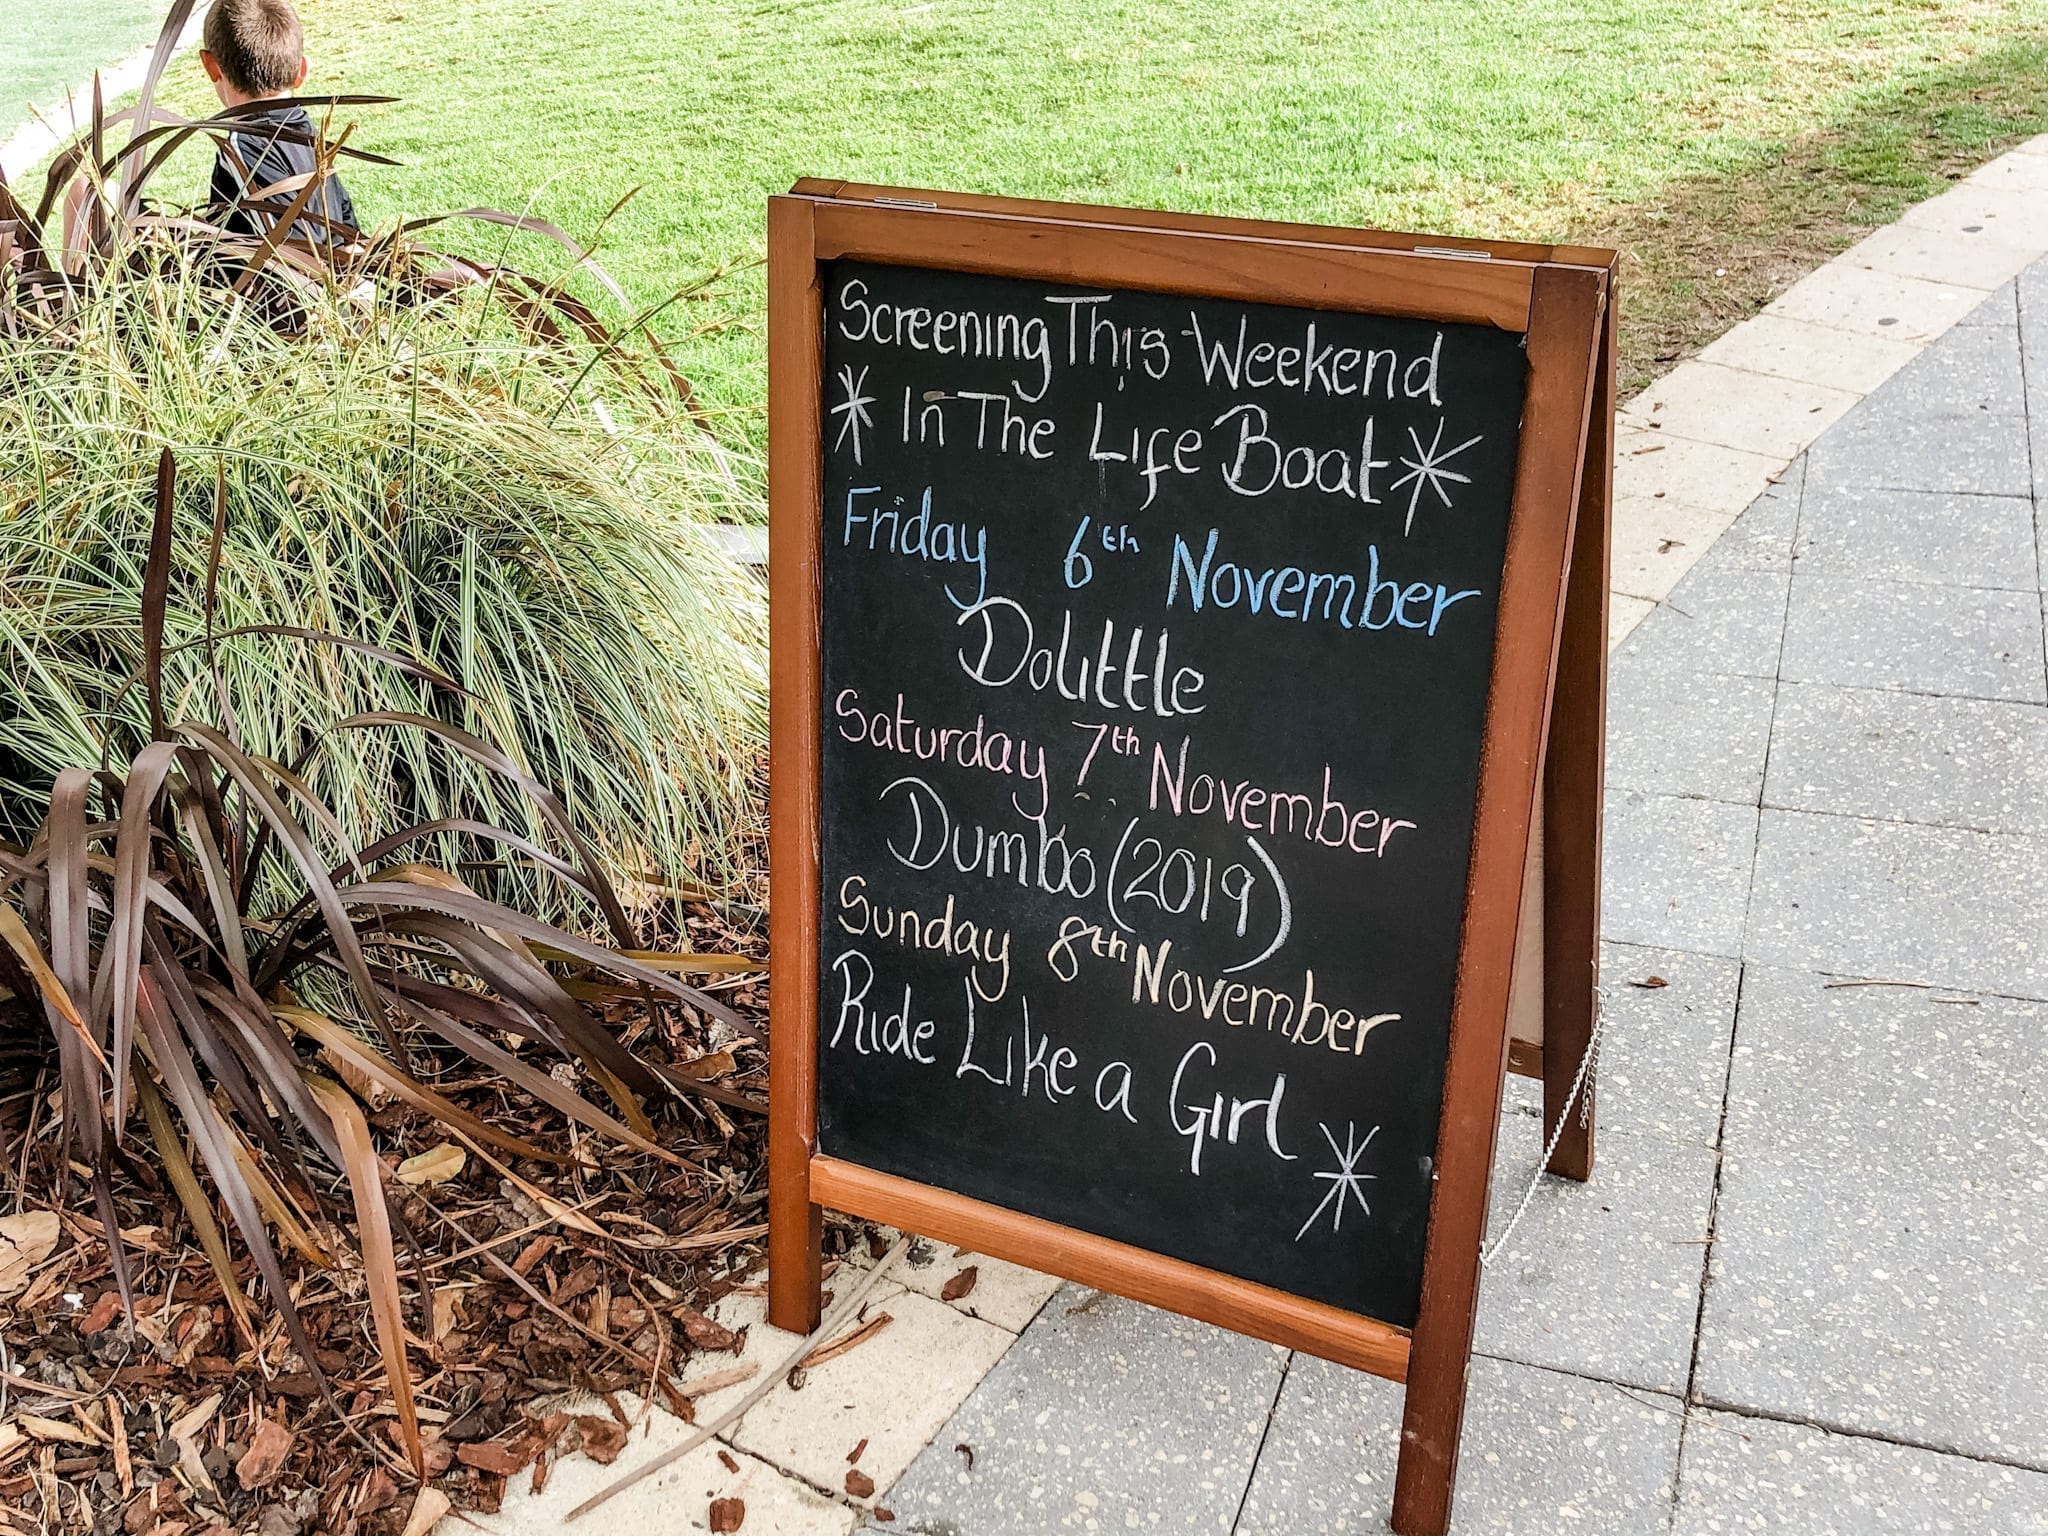 Screening This Weekend
In The Life Boat
Friday 6th November
Dolittle
Saturday 7th November
Dumbo (2019)
Sunday 8th November
Ride Like a Girl